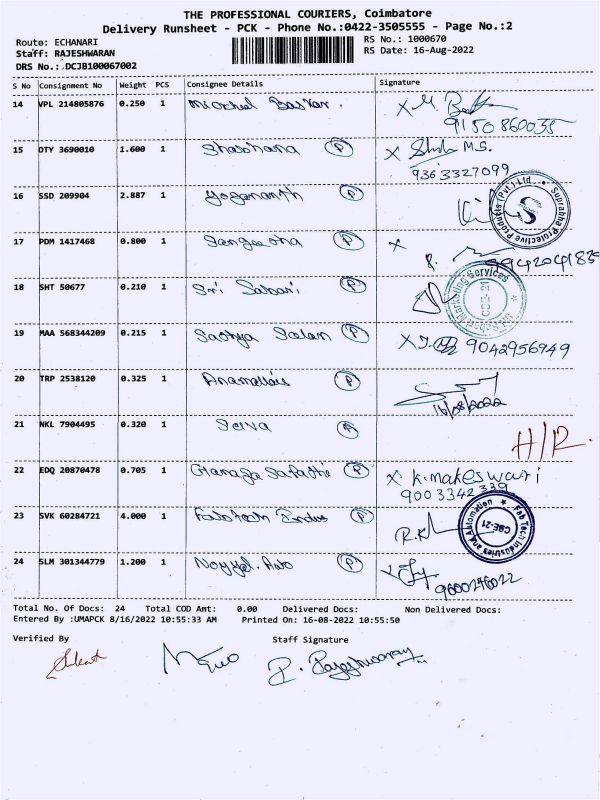 THE PROFESSIONAL COURIERS, Coimbatore
Delivery Runsheet - PCK - Phone No.:0422-3505555 - Page No.:2
Route: ECHANARI RS No.: 1000670
Staff: RAJESHWARAN RS Date: 16-Aug-2022
DRS No.: DCJB100067002
S No Consignment No Weight PCS Consignee Details Signature
14 VPL 214805876 0.250 1 Baskar.
9150860035
15 DTY 3690010 1.600 1 Shabhana P X M.S.
9363327099
16 SSD 209904 2.887 1 Yogananth P
Suprabha Protective Products (Pvt.) Ltd.
17 PDM 1417468 0.800 1 Sangeetha P X
18 SHT 50677 0.210 1 Sri P
Marketing Services CBE-21
19 MAA 568344209 0.215 1 Sathya P X 9042956949
20 TRP 2538120 0.325 1 P
16/08/2022
21 NKL 7904495 0.320 1 Selva P
H/R.
22 EDQ 20870478 0.705 1 P X K. Makeswari
9003342339
23 SVK 60284721 4.000 1 P
Fab Tech Industries and Automation CBE-21
24 SLM 301344779 1.200 1 Noyyal. P X
9600246022
Total No. Of Docs: 24 Total COD Amt: 0.00 Delivered Docs: Non Delivered Docs:
Entered By :UMAPCK 8/16/2022 10:55:33 AM Printed On: 16-08-2022 10:55:50
Verified By Staff Signature